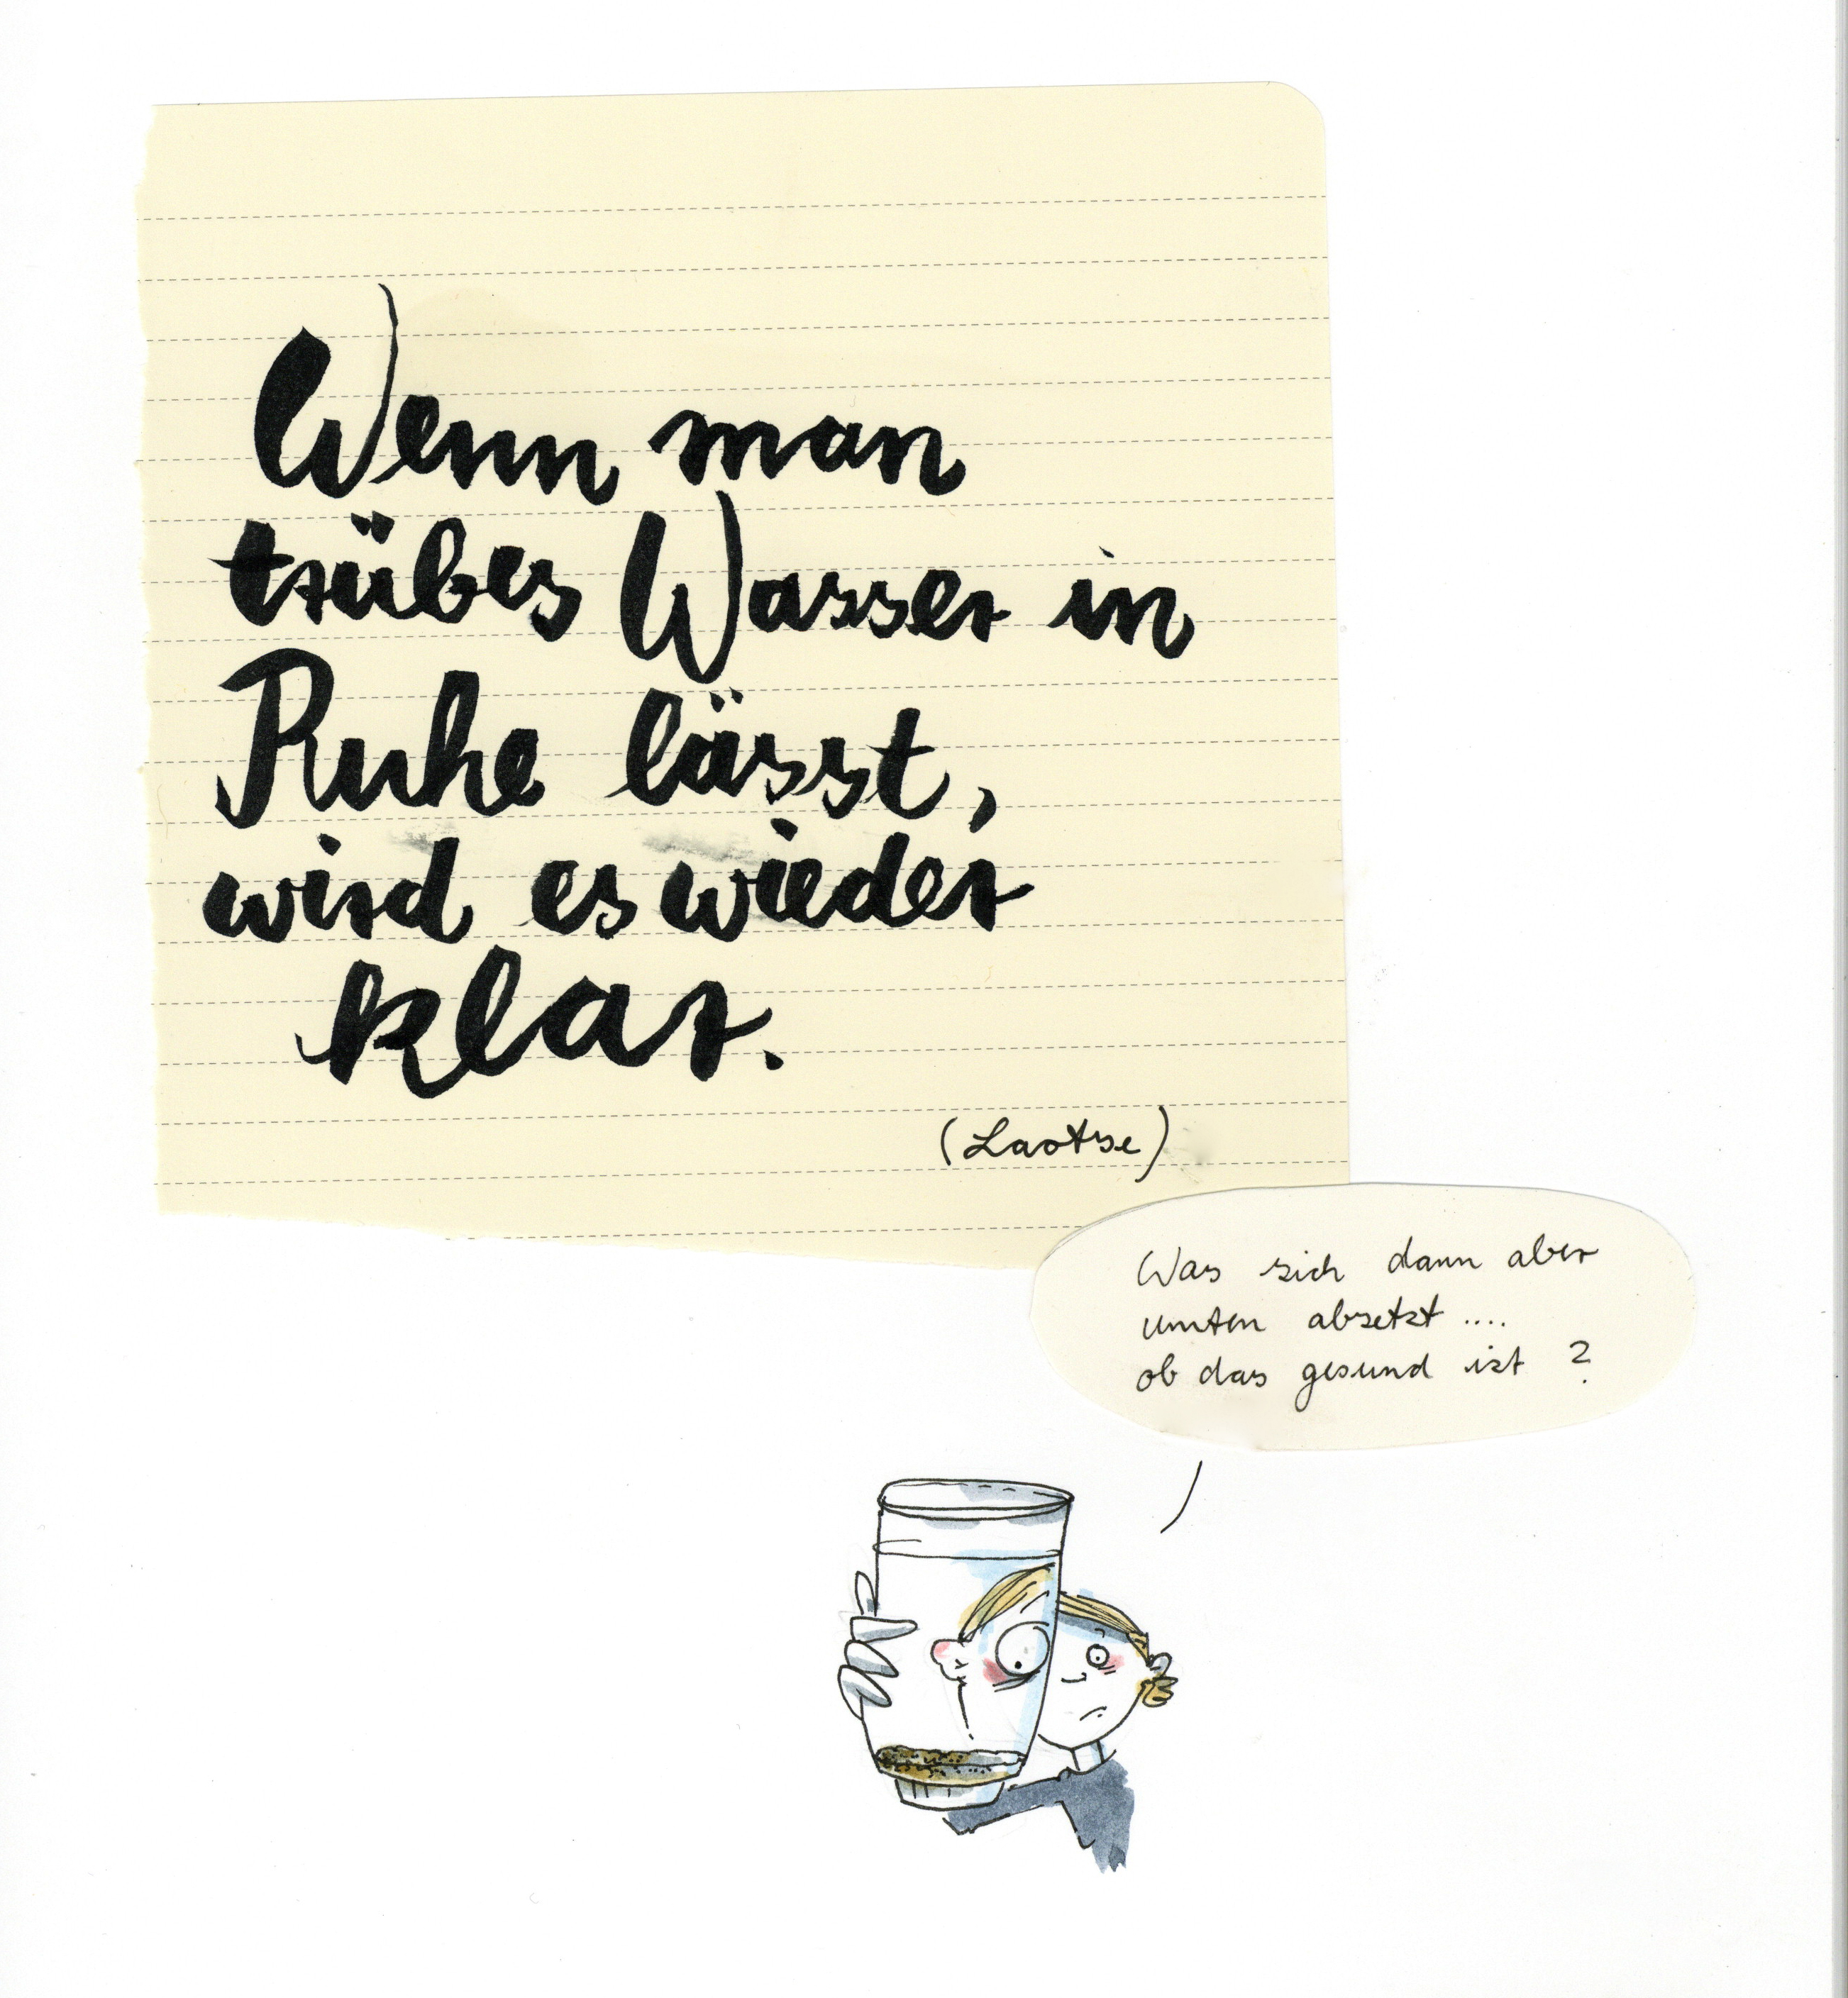 Wenn man
trübes Wasser in
Ruhe lässt,
wird es wieder
klar.
(Laotse)
Was sich dann aber
unten absetzt ....
ob das gesund ist ?